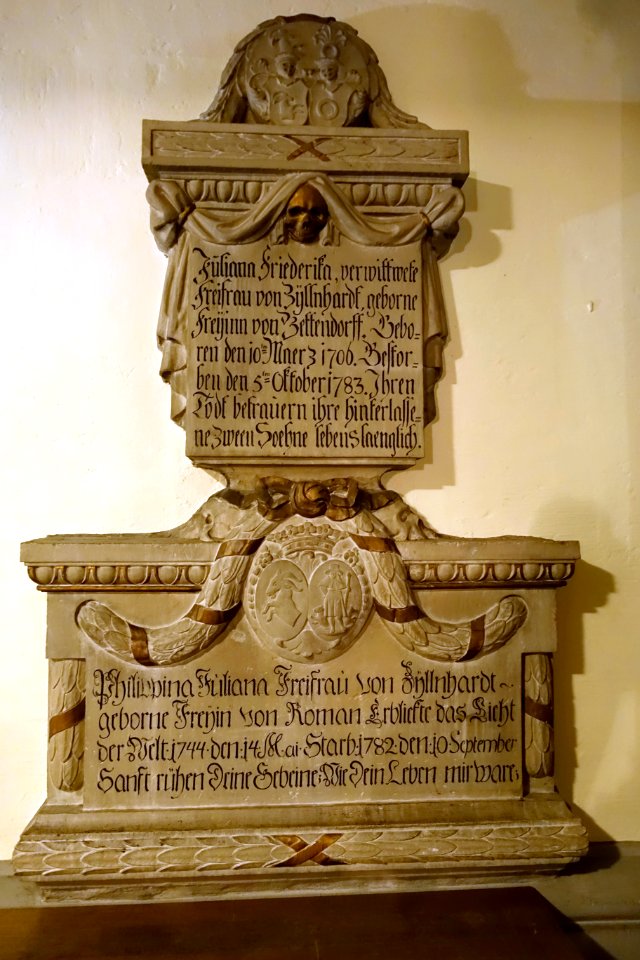 Juliana Friederika, verwittwete
Freifrau von Zÿllnhardt, geborne
Freÿinn von Bettendorff. Gebo-
ren den 10ten Maerz 1706. Gestor-
ben den 5ten Oktober 1783. Ihren
Todt betrauern ihre hinterlasse-
ne zween Soehne lebenslaenglich.
Philippina Juliana Freifrau von Zÿllnhardt ~
geborne Freÿin von Roman Erbliekte das Licht
der Welt 1744 den 14 Mai Starb 1782 den 10 September
Sanft ruhen Deine Gebeine Wie Dein Leben mir ware